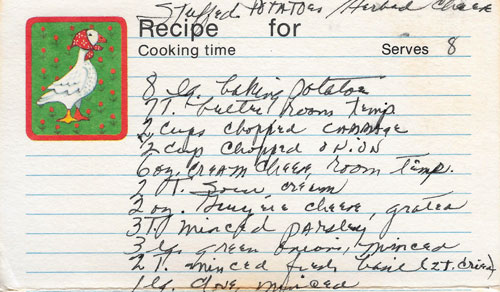 Stuffed POTATOES / Herbed Cheese
Recipe for
Cooking time Serves 8
8 lg. baking potatoes
7T. butter room temp
2 cups chopped CABBAGE
1/2 cup chopped ONION
6 oz. CREAM Cheese, room temp.
2 T. Sour cream
2 oz. Gruyere cheese, grated
3T. minced parsley
3 lg. green onions, minced
2T. minced fresh basil (2 t. dried)
1 lg. clove, minced